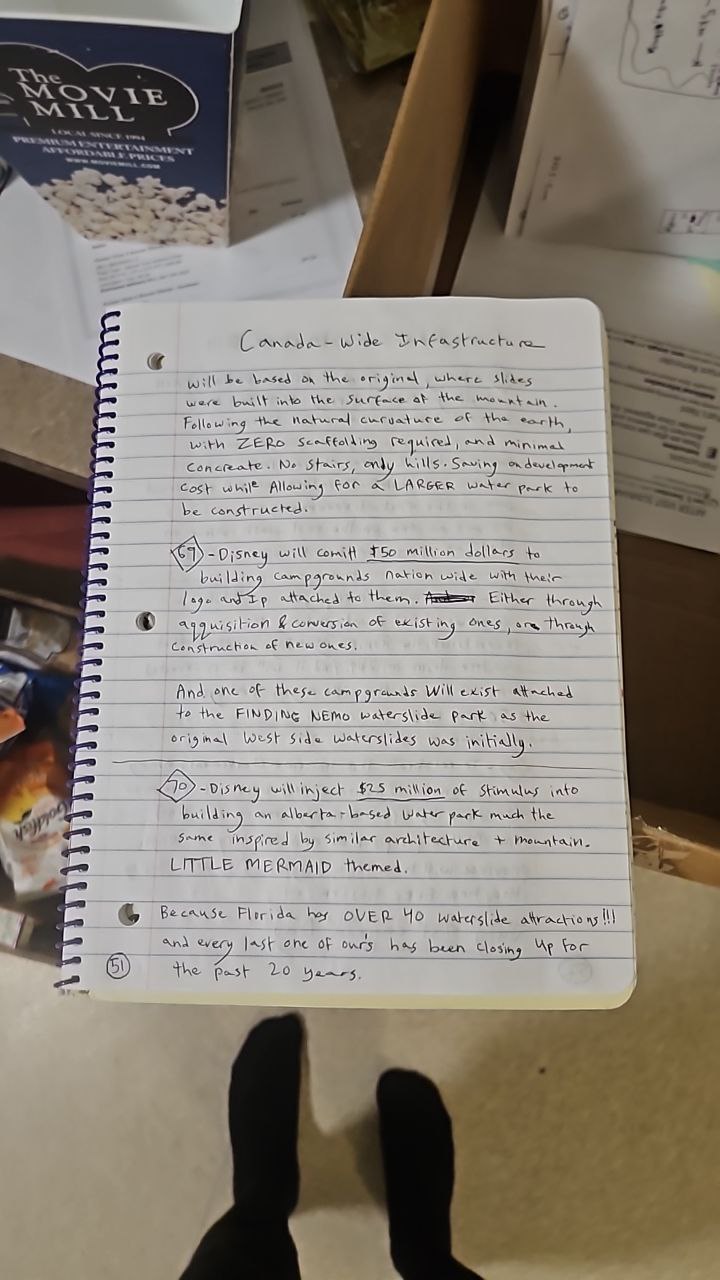 The
MOVIE
MILL
LOCAL SINCE 1994
PREMIUM ENTERTAINMENT
AFFORDABLE PRICES
WWW.MOVIEMILL.COM
Canada-Wide Infastructure
will be based on the original, where slides
were built into the surface of the mountain.
Following the natural curvature of the earth,
with ZERO scaffolding required, and minimal
concreate. No stairs, only hills. Saving on development
cost while Allowing for a LARGER water park to
be constructed.
69 - Disney will comitt $50 million dollars to
building campgrounds nation wide with their
logo and Ip attached to them. Either through
aqquisition & conversion of existing ones, or through
construction of new ones.
And one of these campgrounds Will exist attached
to the FINDING NEMO waterslide park, as the
original West side Waterslides was initially.
70 - Disney will inject $25 million of stimulus into
building an alberta-based water park much the
same inspired by similar architecture + mountain.
LITTLE MERMAID themed.
Because Florida has OVER 40 waterslide attractions!!!
and every last one of our's has been closing up for
the past 20 years.
51
Goldfish